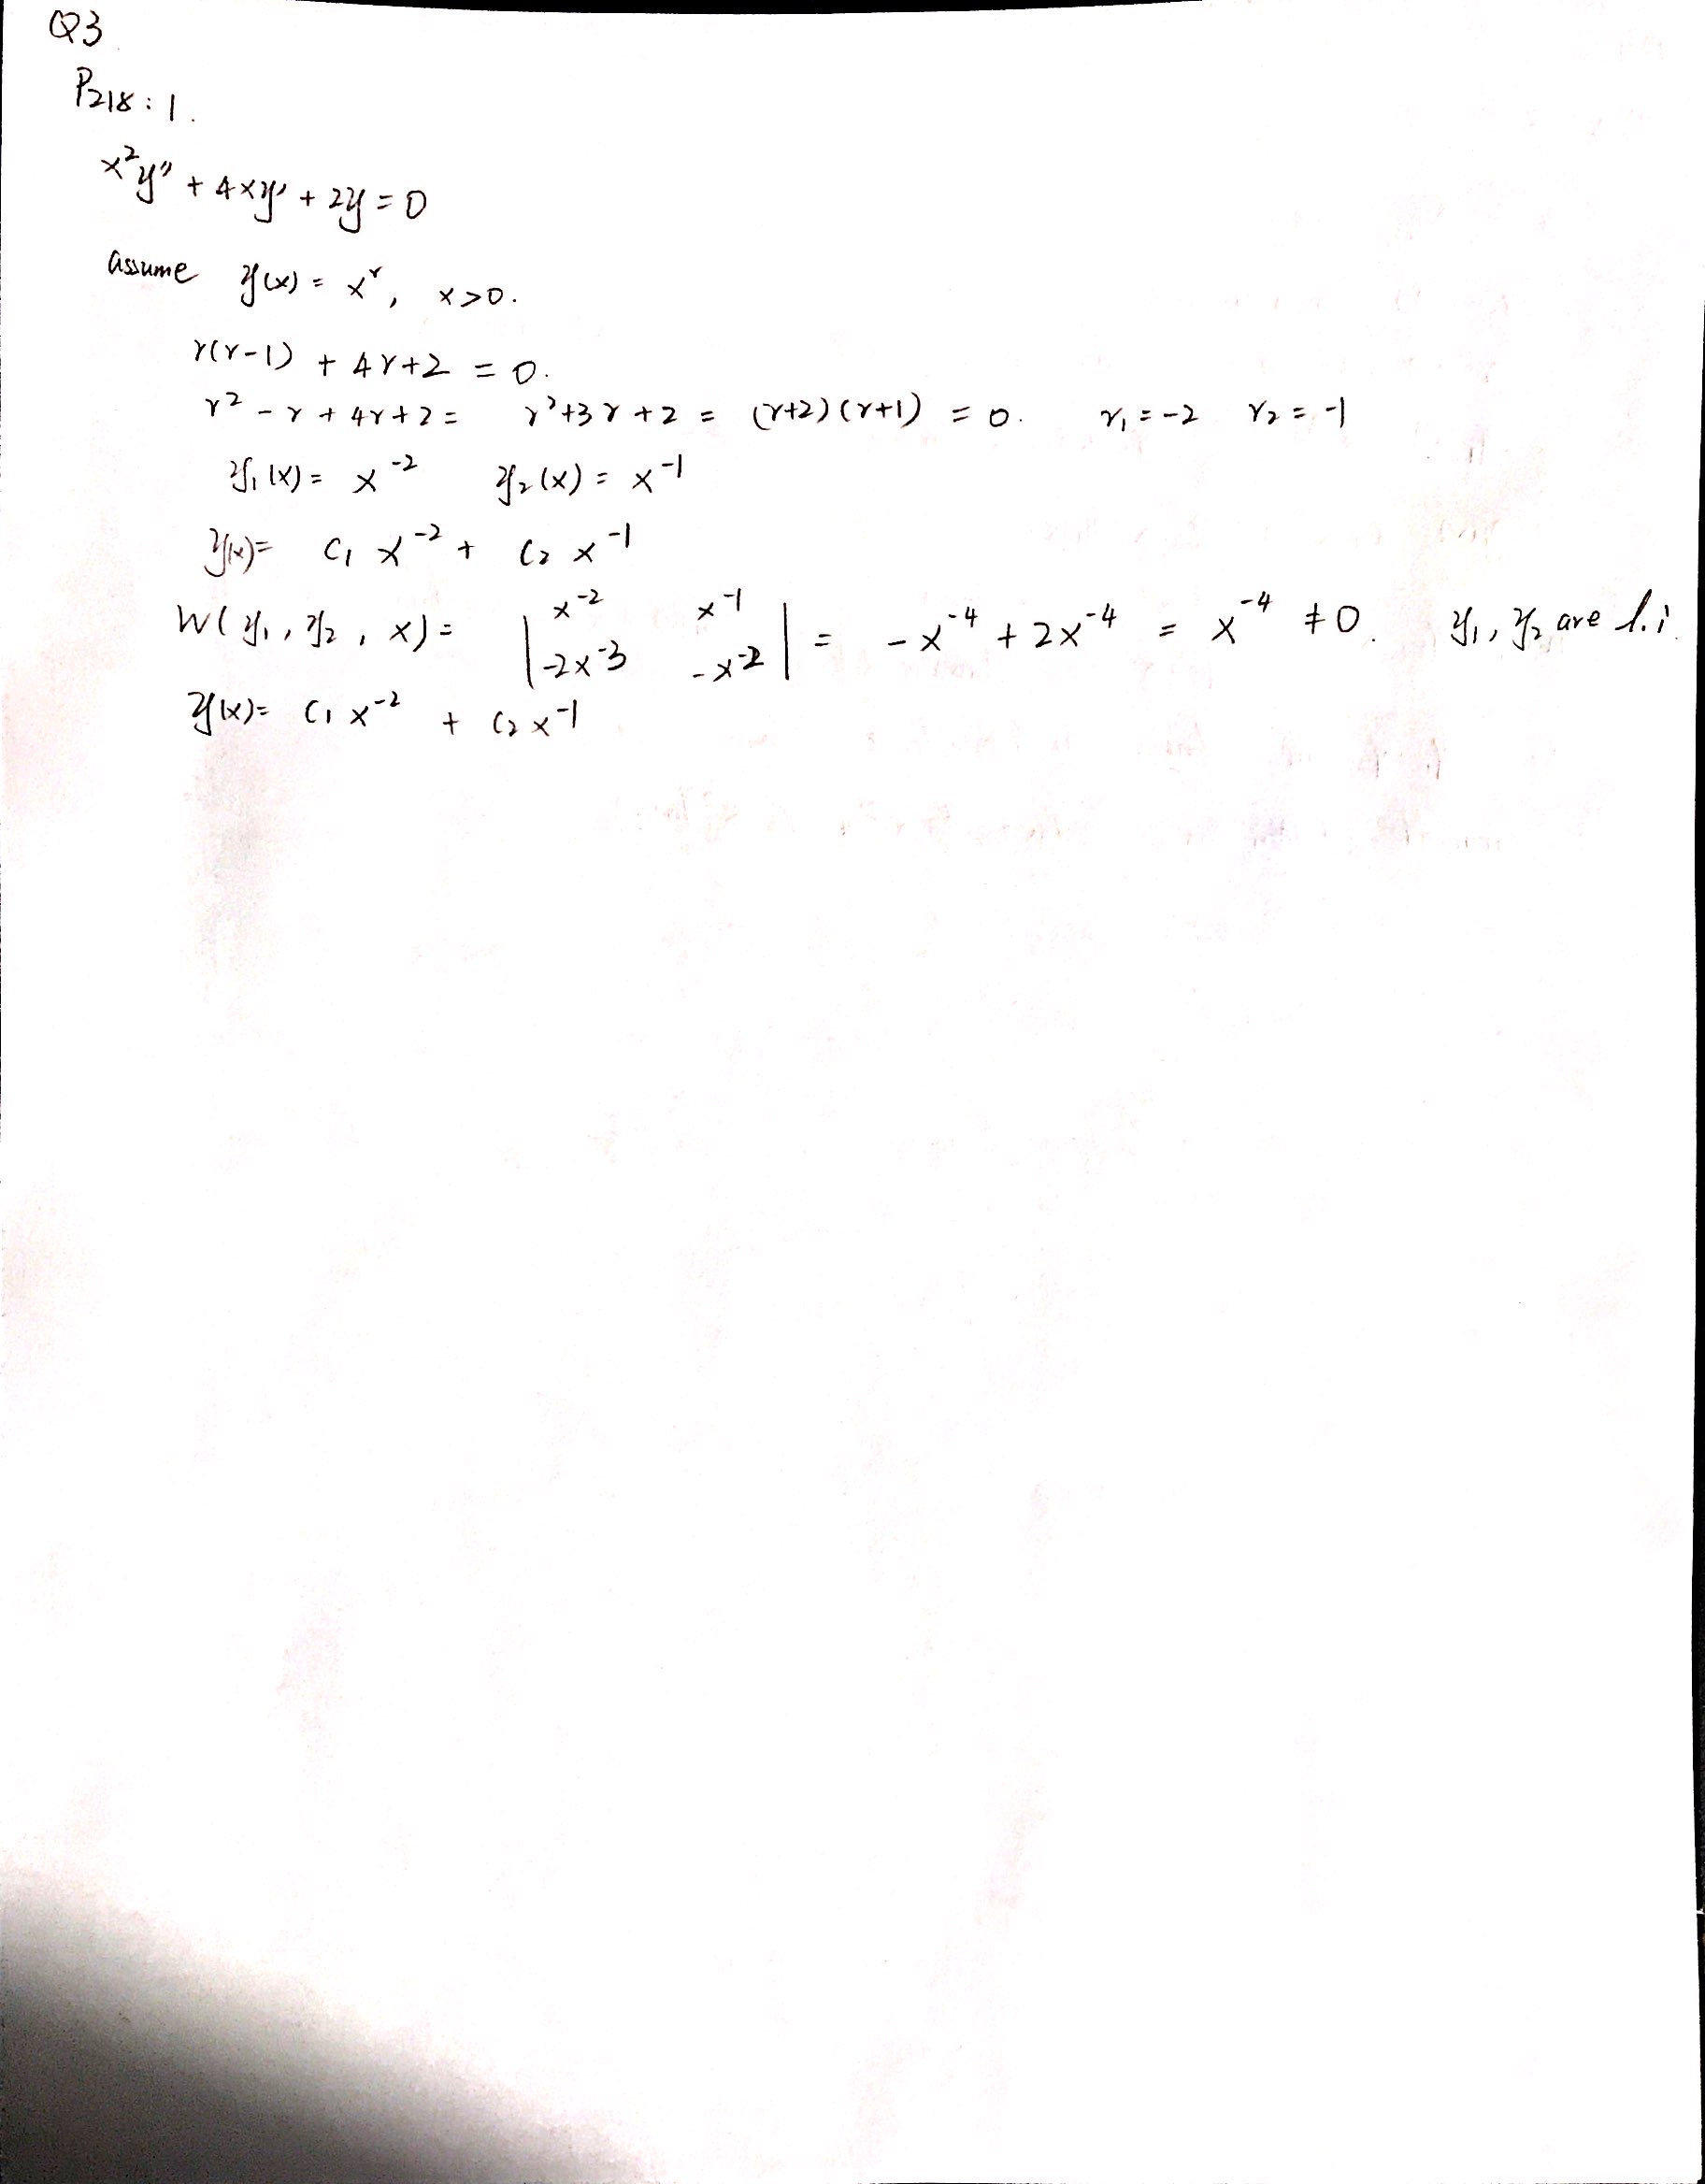 Q3
P218 : 1.
x²y'' + 4xy' + 2y = 0
assume y(x) = x^r, x>0.
r(r-1) + 4r+2 = 0.
r² - r + 4r+2 = r²+3r+2 = (r+2)(r+1) = 0. r₁ = -2 r₂ = -1
y₁(x) = x^-2 y₂(x) = x^-1
y(x)= c₁ x^-2 + c₂ x^-1
W(y₁, y₂, x) = | x^-2 x^-1 -2x^-3 -x^-2 | = -x^-4 + 2x^-4 = x^-4 ≠ 0. y₁, y₂ are l.i
y(x)= c₁ x^-2 + c₂ x^-1